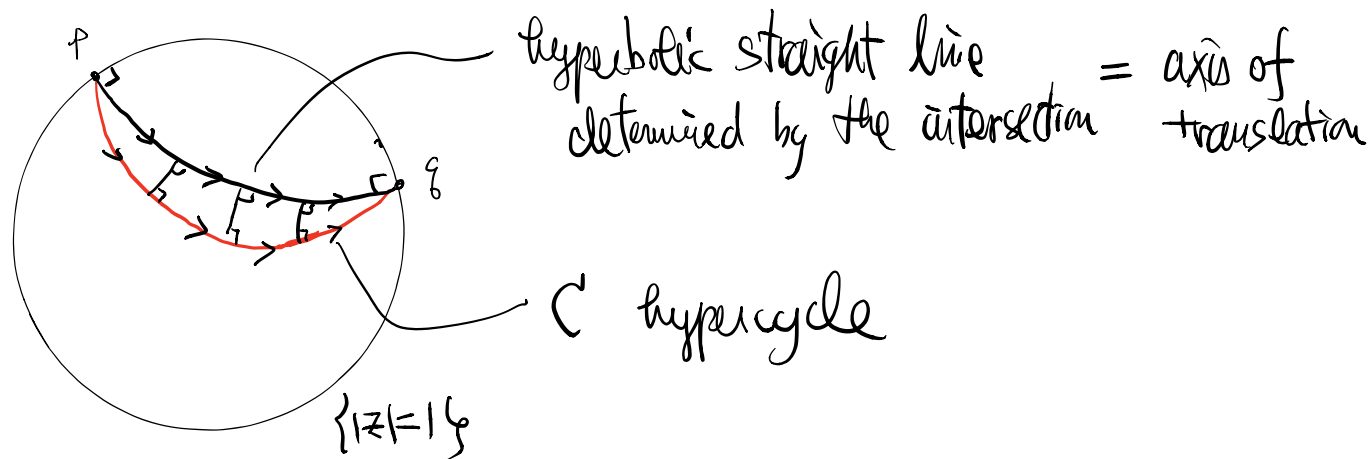 p
hyperbolic straight line = axis of
determined by the intersection translation
q
C hypercycle
{|z|=1}